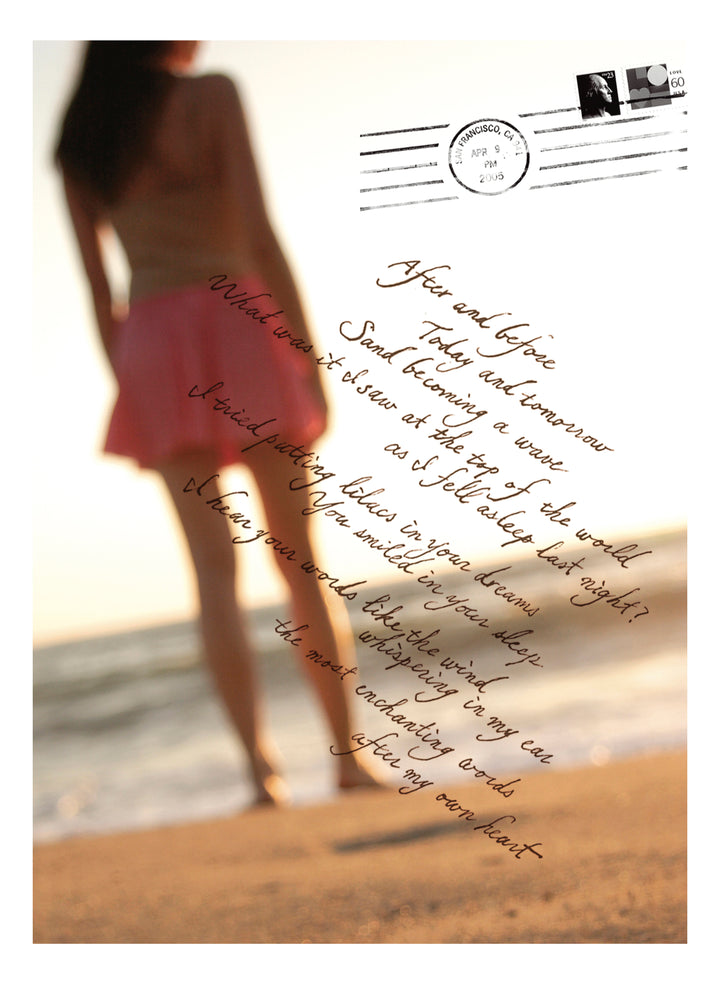 23
LOVE
60
USA
SAN FRANCISCO, CA 941
APR 9
PM
2005
After and before
Today and tomorrow
Sand becoming a wave
What was it I saw at the top of the world
as I fell asleep last night?
I tried putting lilacs in your dreams
You smiled in your sleep
I hear your words like the wind
whispering in my ear
the most enchanting words
after my own heart